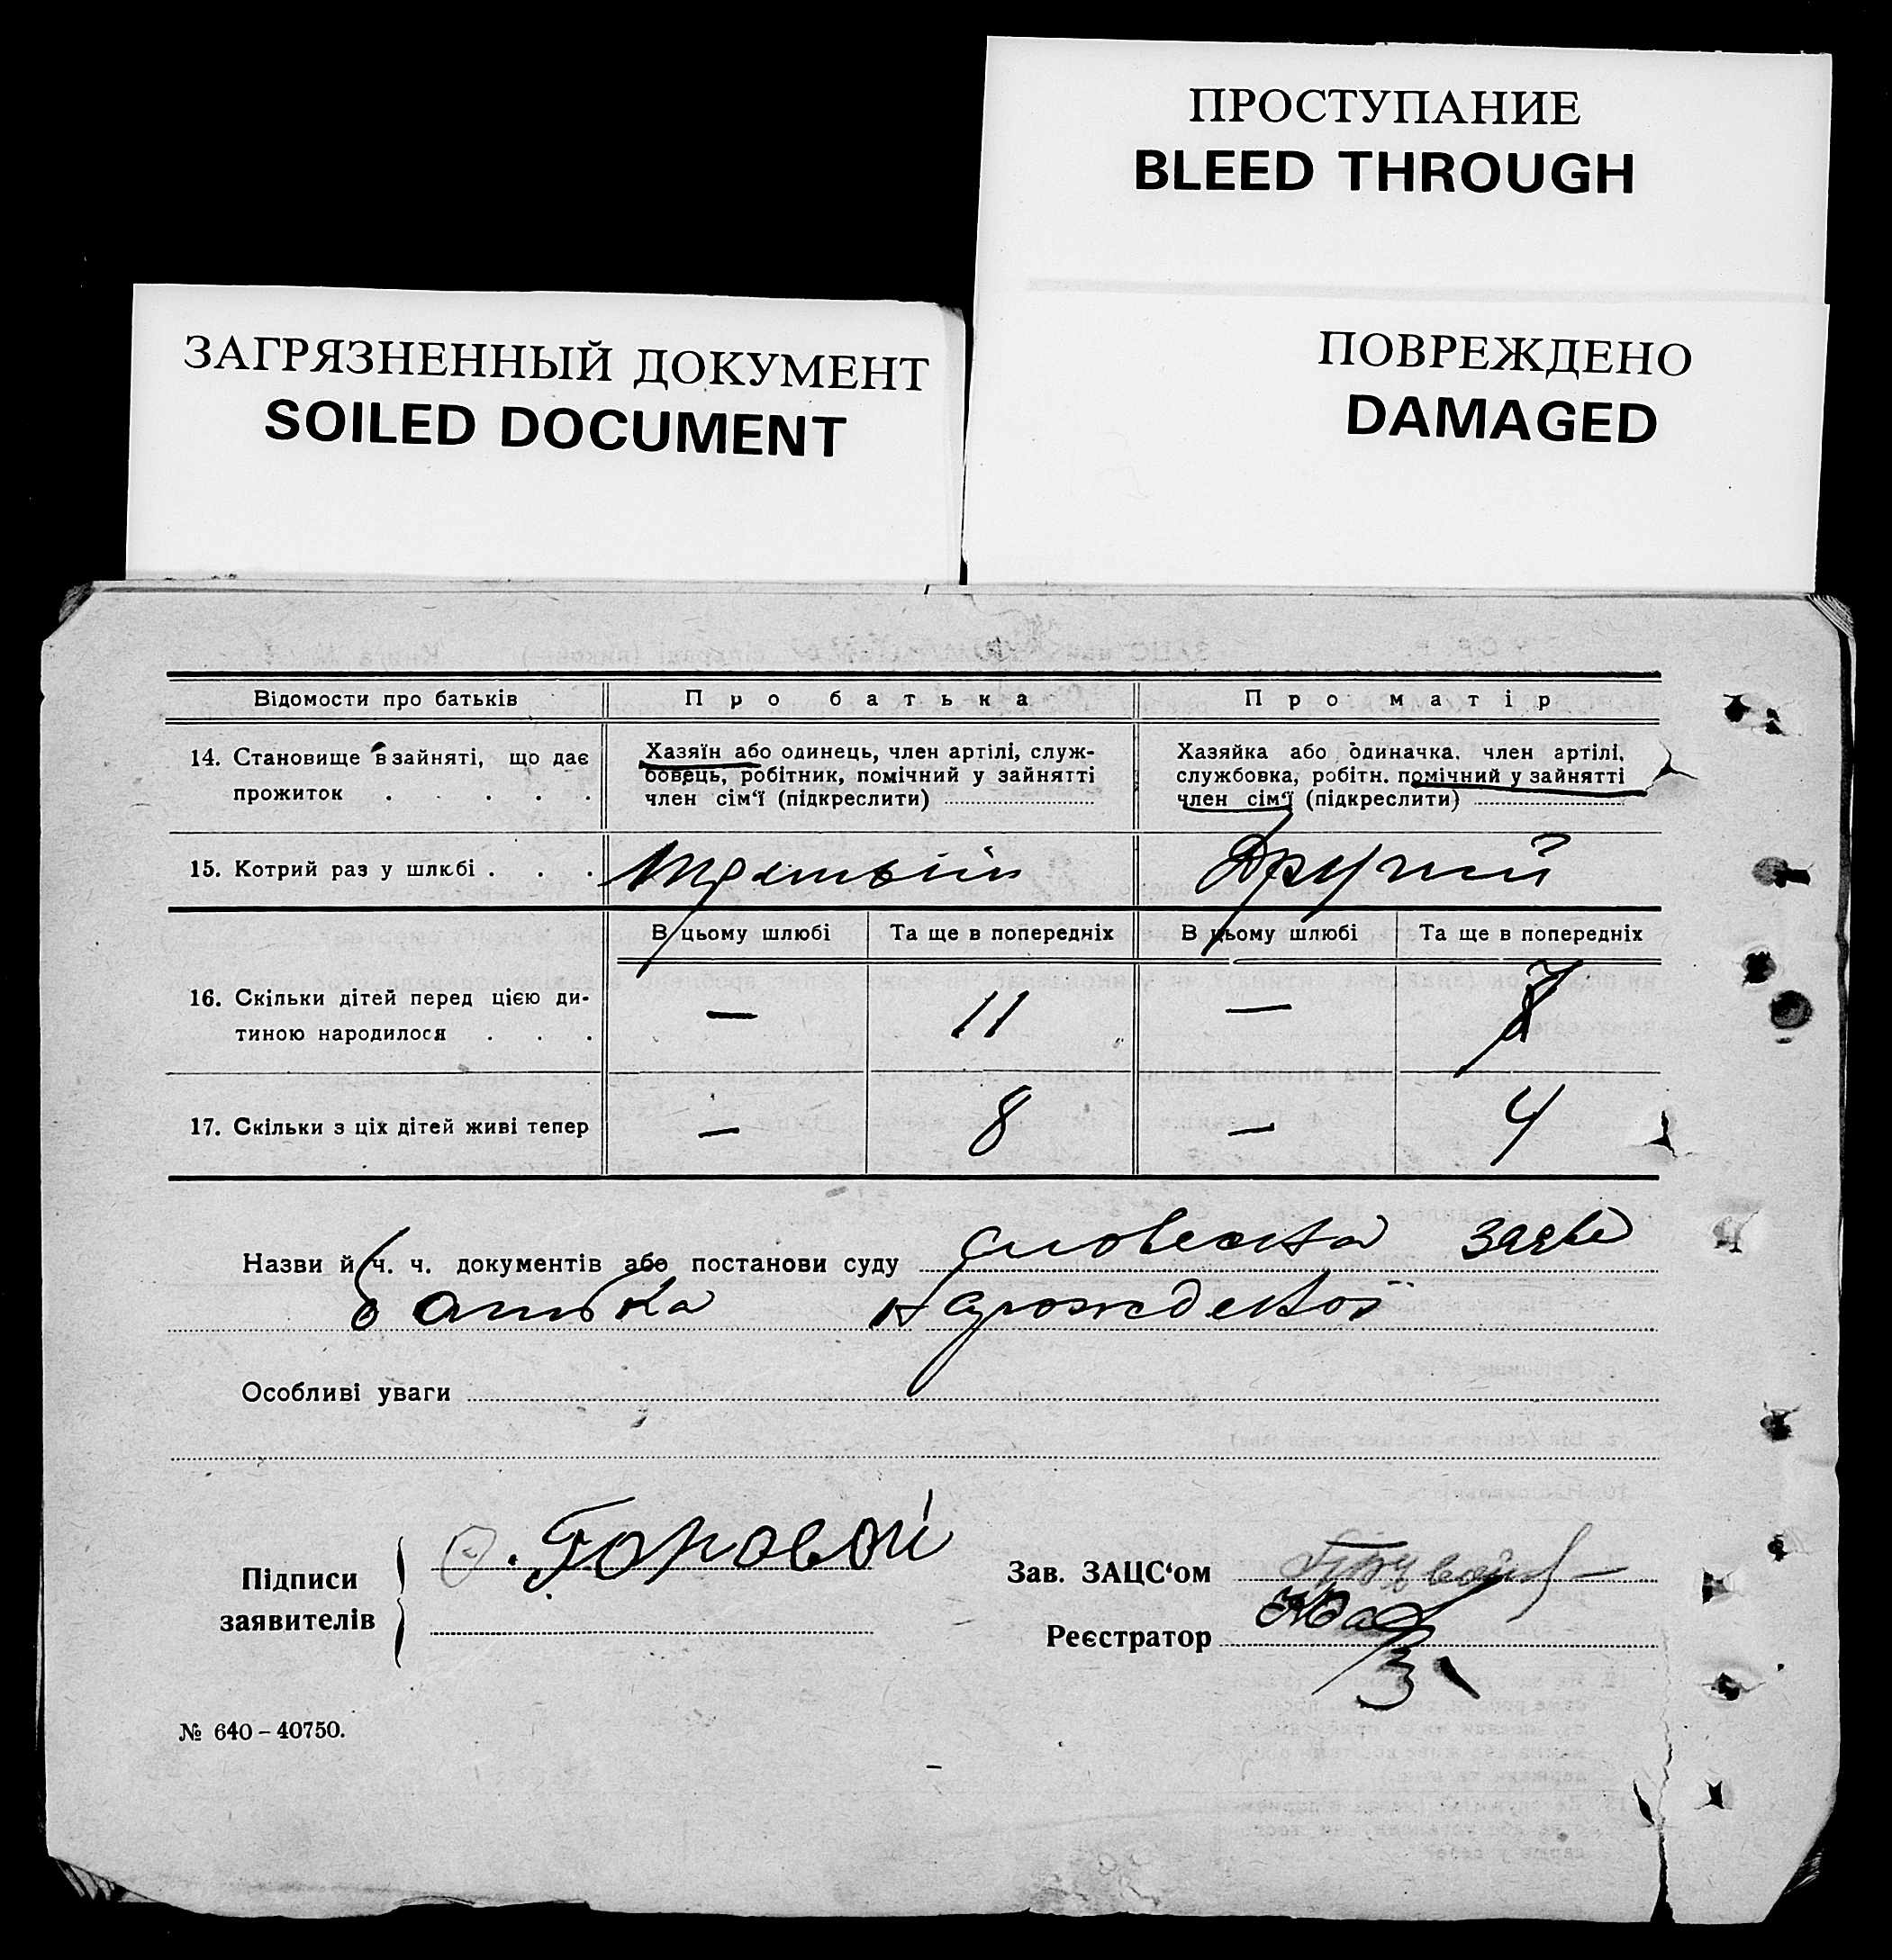 ПРОСТУПАНИЕ
BLEED THROUGH
ПОВРЕЖДЕНО
DAMAGED
ЗАГРЯЗНЕННЫЙ ДОКУМЕНТ
SOILED DOCUMENT
Відомости про батьків Про батька Про матір
14. Становище в зайняті, що дає прожиток . . . . .
Хазяїн або одинець, член артілі, служ-
бовець, робітник, помічний у зайнятті
член сім‘ї (підкреслити)
Хазяйка або одиначка, член артілі,
службовка, робітн. помічний у зайнятті
член сім‘ї (підкреслити)
15. Котрий раз у шлюбі . . . Третьій Другий
В цьому шлюбі Та ще в попередніх В цьому шлюбі Та ще в попередніх
16. Скільки дітей перед цією ди-
тиною народилося . . . — 11 —
17. Скільки з ціх дітей живі тепер — 8 — 4
Назви й ч. ч. документів або постанови суду словесна заяв
батька
Особливі уваги
Підписи
заявителів
Зав. ЗАЦС‘ом
Реєстратор
№ 640 – 40750.